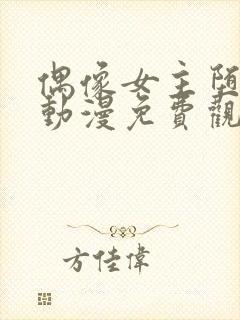 偶像女主堕
動漫免費觀
方佳偉